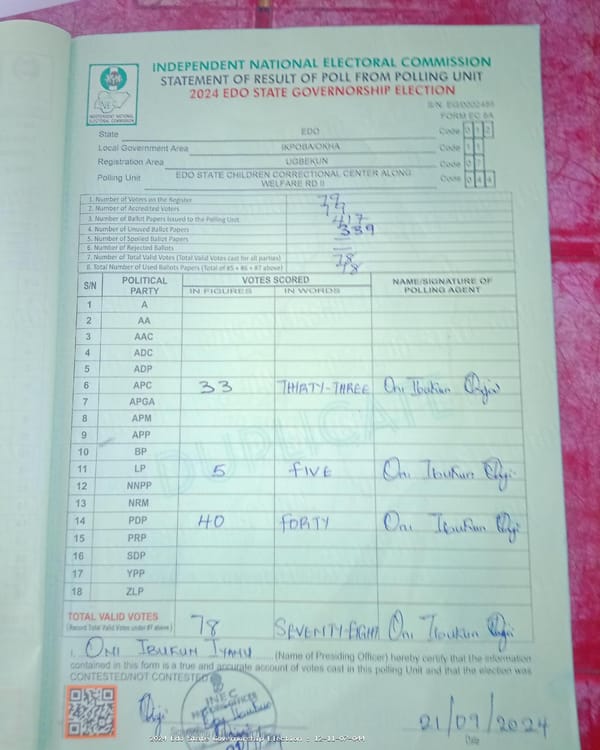 INDEPENDENT NATIONAL ELECTORAL COMMISSION
STATEMENT OF RESULT OF POLL FROM POLLING UNIT
2024 EDO STATE GOVERNORSHIP ELECTION
FORM EC 8A
INEC
INDEPENDENT NATIONAL ELECTORAL COMMISSION
State EDO Code 0 1 2
Local Government Area IKPOBA/OKHA Code 1 1
Registration Area UGBEKUN Code 0 7
Polling Unit EDO STATE CHILDREN CORRECTIONAL CENTER ALONG WELFARE RD II Code 0 4 4
1. Number of Voters on the Register
2. Number of Accredited Voters
3. Number of Ballot Papers Issued to the Polling Unit 417
4. Number of Unused Ballot Papers 339
5. Number of Spoiled Ballot Papers
6. Number of Rejected Ballots
7. Number of Total Valid Votes (Total Valid Votes cast for all parties) 78
8. Total Number of Used Ballots Papers (Total of #5 + #6 + #7 above) 78
S/N POLITICAL PARTY VOTES SCORED NAME/SIGNATURE OF POLLING AGENT
IN FIGURES IN WORDS
1 A
2 AA
3 AAC
4 ADC
5 ADP
6 APC 33 THIRTY-THREE Oni Ibukun
7 APGA
8 APM
9 APP
10 BP
11 LP 5 FIVE Oni Ibukun
12 NNPP
13 NRM
14 PDP 40 FORTY Oni Ibukun
15 PRP
16 SDP
17 YPP
18 ZLP
DUPLICATE
TOTAL VALID VOTES 78 SEVENTY-EIGHT Oni Ibukun
(Record Total Valid Votes under #7 above)
I, ONI IBUKUN IYANU (Name of Presiding Officer) hereby certify that the information
contained in this form is a true and accurate account of votes cast in this polling Unit and that the election was
CONTESTED/NOT CONTESTED
INEC
21/09/2024
Date
2024 Edo State Governorship Election - 12-11-07-044